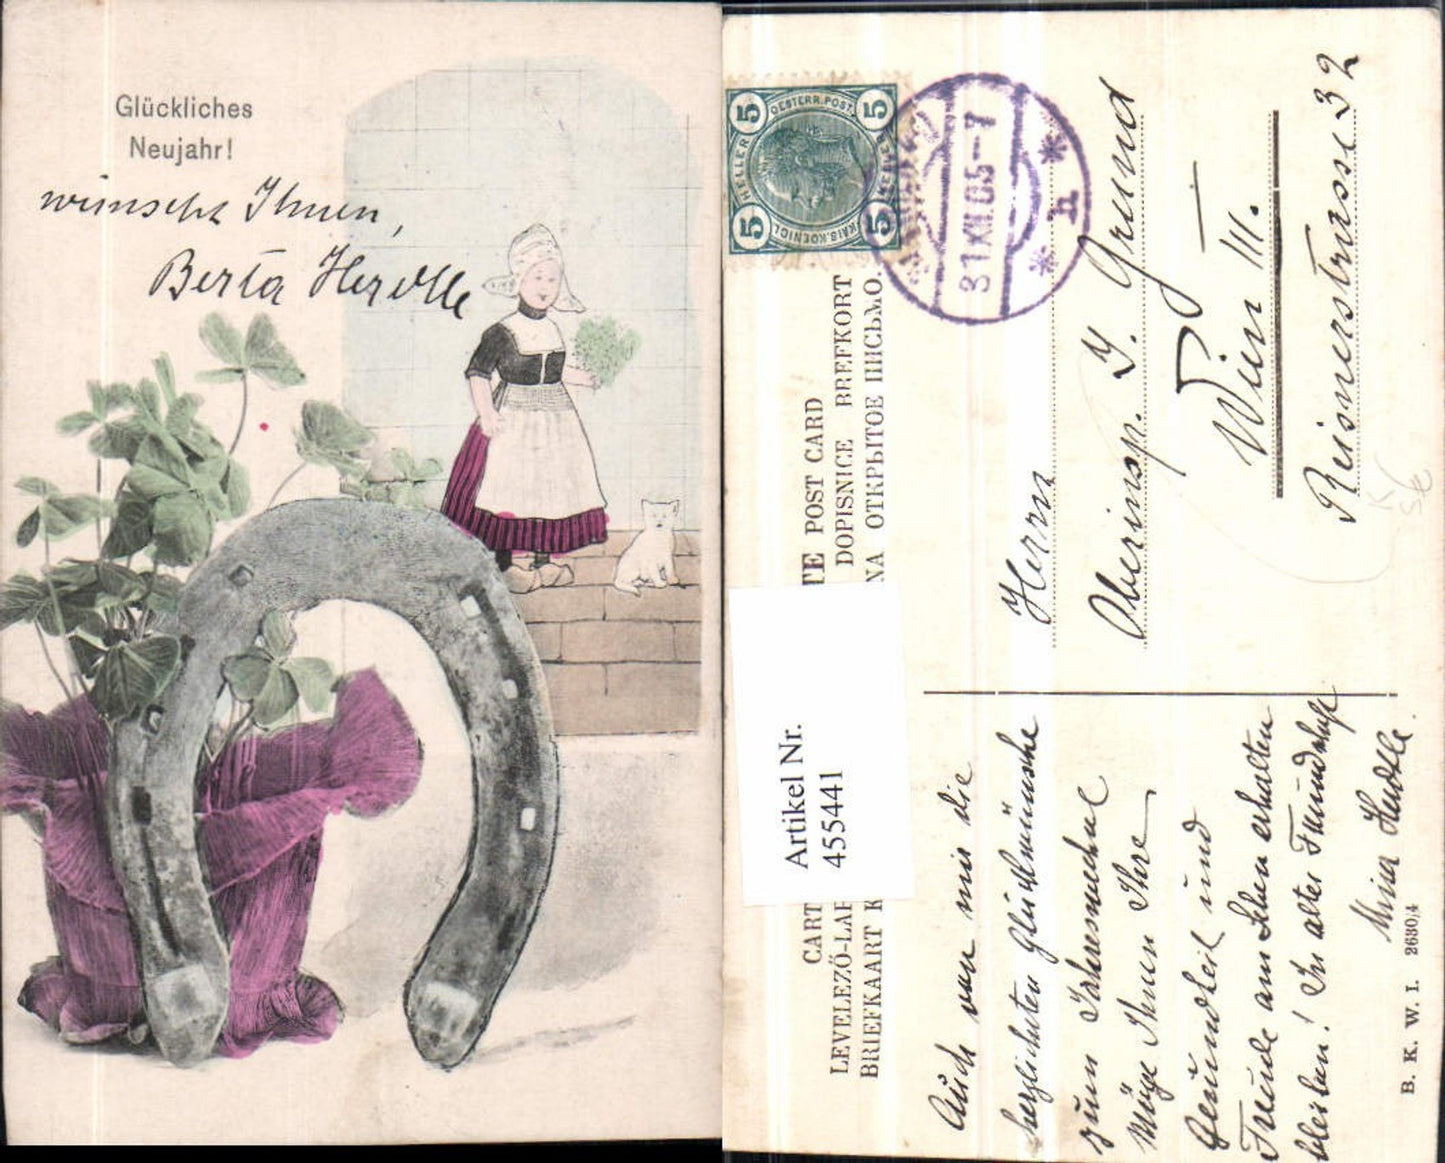 Glückliches
Neujahr!
wünscht Ihnen,
Berta Herdtle
5 OESTERR. POST. 5
HELLER HELLER
5 KAIS. KOENIGL. 5
31.XII.05-7
* h *
TE POST CARD
DOPISNICE BREFKORT
NA ОТКРЫТОЕ ПИСЬМО.
CART
LEVELEZŐ-LAP
BRIEFKAART K
Artikel Nr.
455441
Herrn
Oberinsp. J. Grund
Wien III.
Reisnerstrasse 32
Auch von mir die
herzlichsten Glückwünsche
zum Jahreswechsel
Möge Ihnen Ihre
Gesundheit und
Freude am Leben erhalten
bleiben! In alter Freundschaft
Mina Herdtle.
B. K. W. I. 2630/4